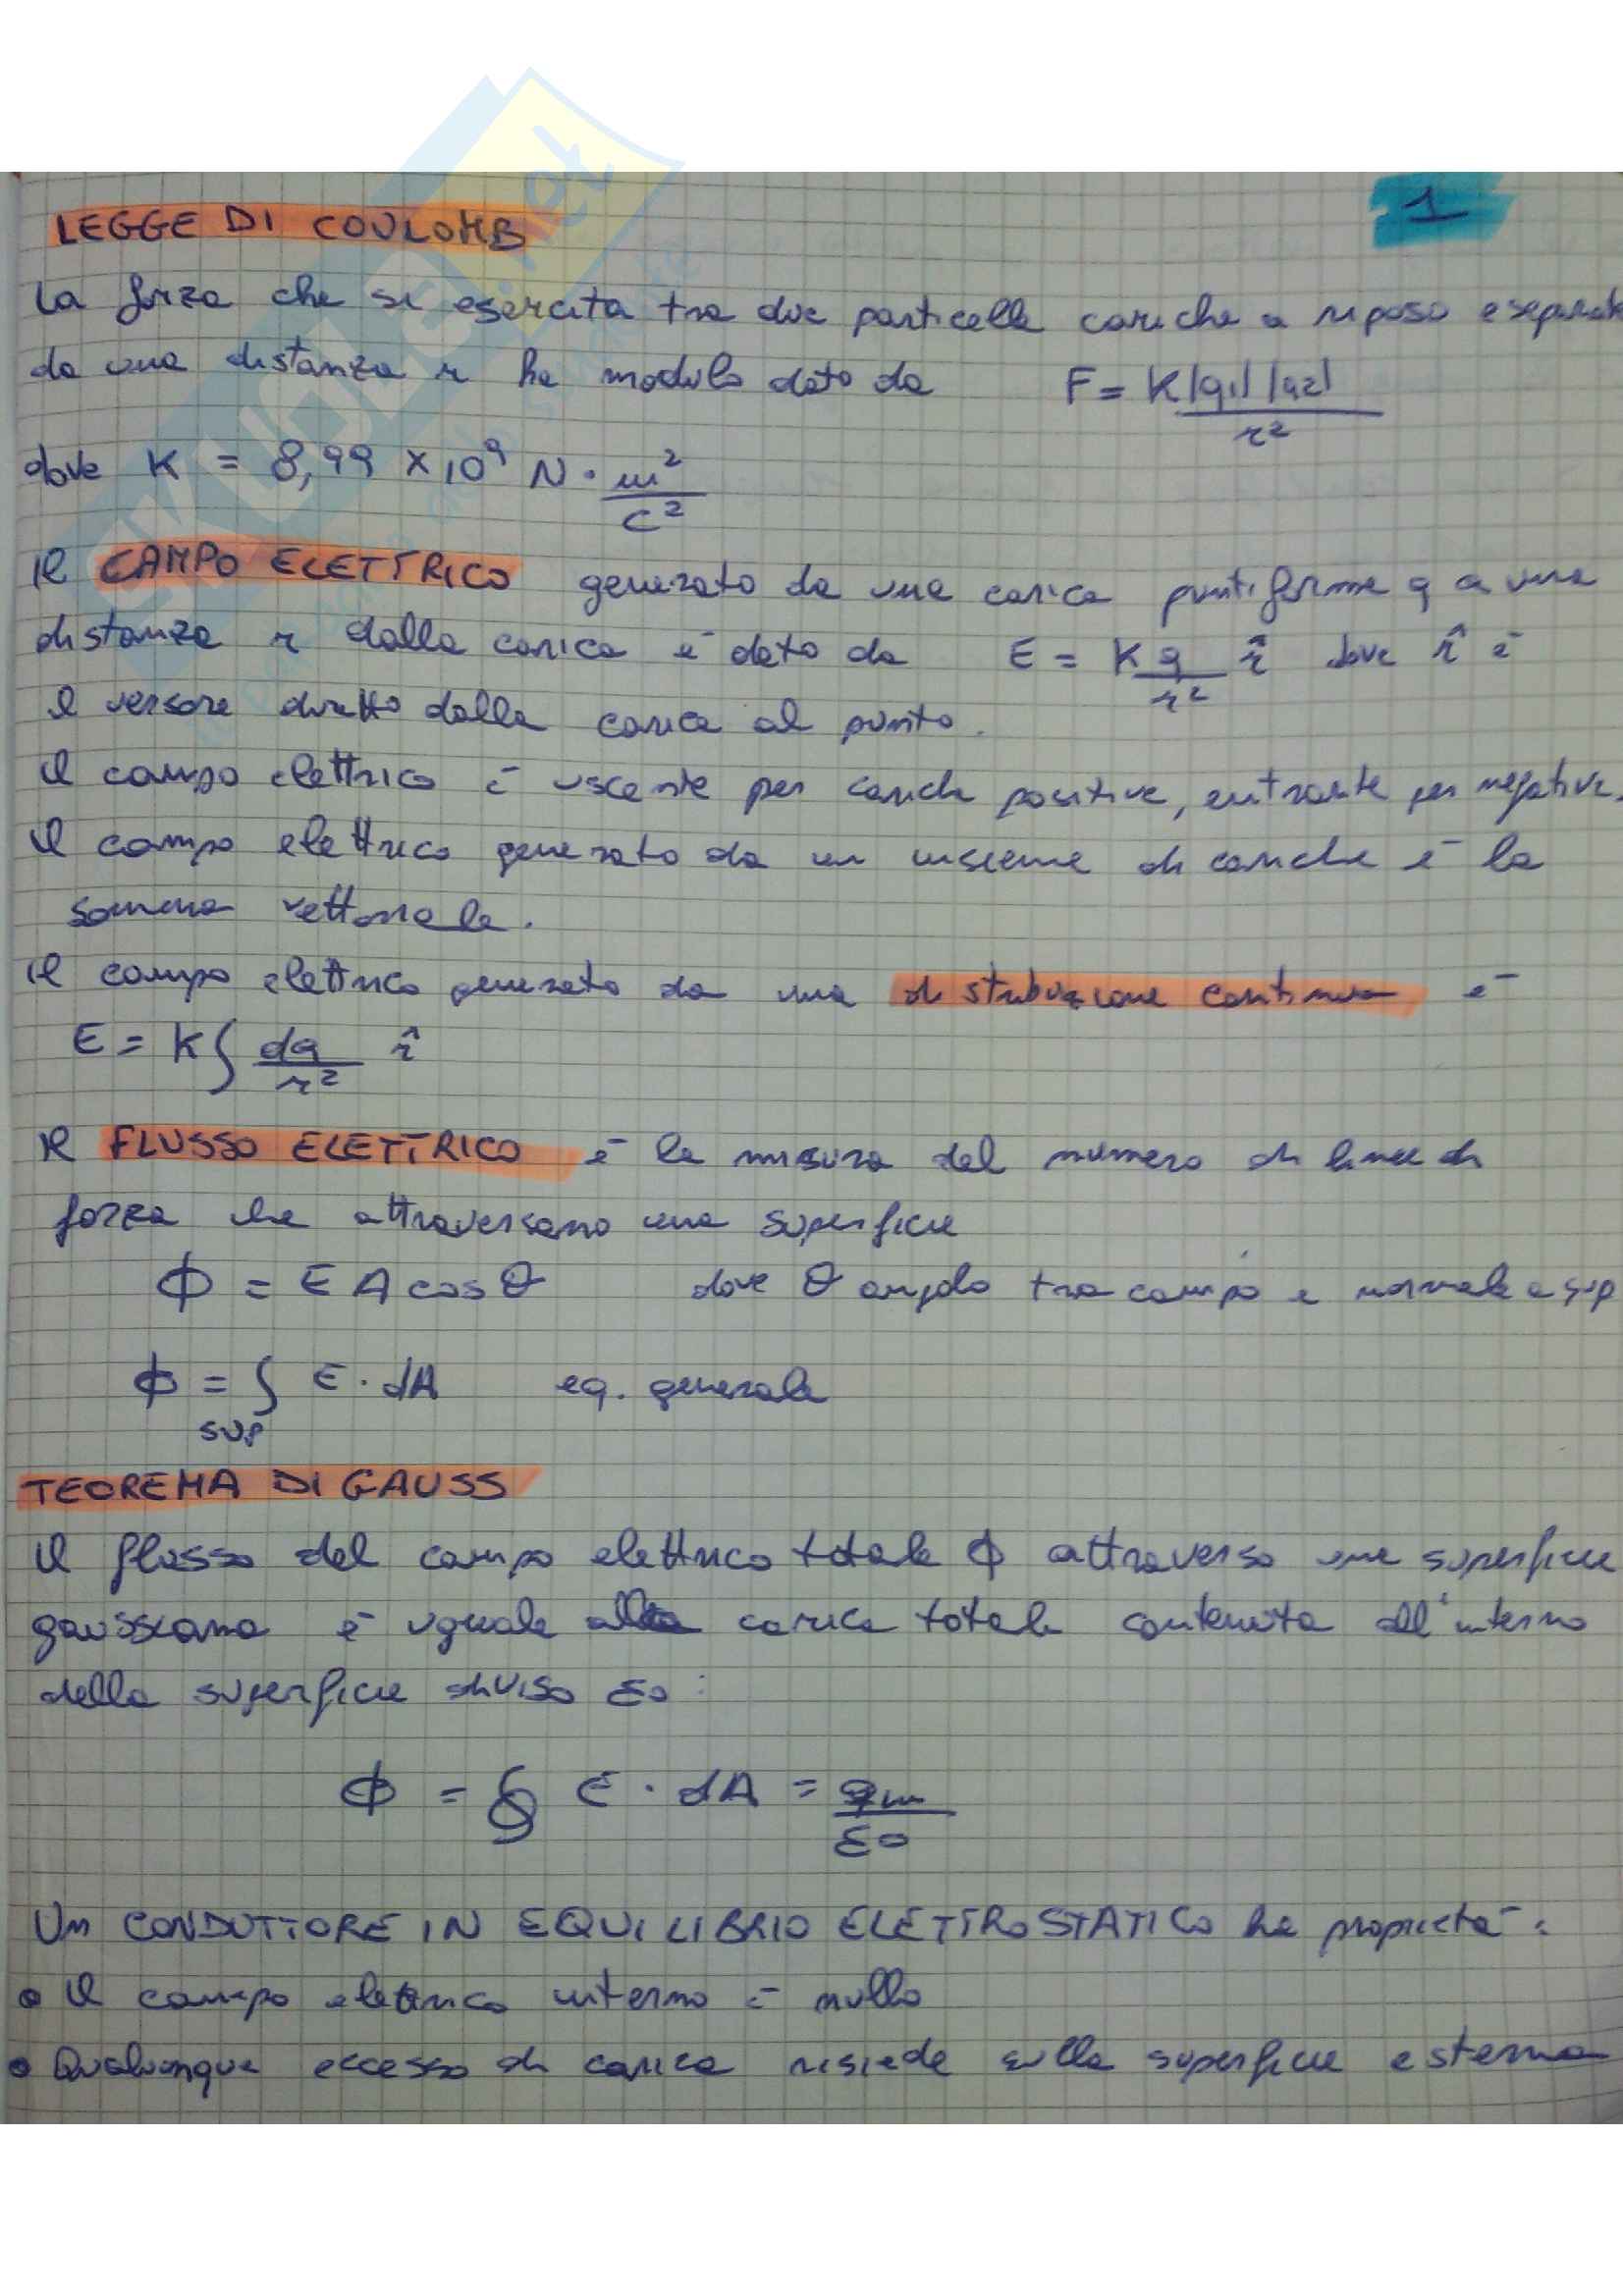 1
LEGGE DI COULOMB
La forza che si esercita tra due particelle cariche a riposo e separate
da una distanza r ha modulo dato da F = K|q1| |q2| / r²
dove K = 8,99 × 10⁹ N · m² / C²
Il CAMPO ELETTRICO generato da una carica puntiforme q a una
distanza r dalla carica è dato da E = K q / r² r̂ dove r̂ è
il versore diretto dalla carica al punto.
Il campo elettrico è uscente per cariche positive, entrante per negative.
Il campo elettrico generato da un insieme di cariche è la
somma vettoriale.
Il campo elettrico generato da una distribuzione continua è
E = K ∫ dq / r² r̂
Il FLUSSO ELETTRICO è la misura del numero di linee di
forza che attraversano una superficie
Φ = E A cos θ dove θ angolo tra campo e normale a sup
Φ = ∫sup E · dA eq. generale
TEOREMA DI GAUSS
Il flusso del campo elettrico totale Φ attraverso una superficie
gaussiana è uguale alla carica totale contenuta all'interno
della superficie diviso ε0 :
Φ = ∮ E · dA = qin / ε0
Un CONDUTTORE IN EQUILIBRIO ELETTROSTATICO ha proprietà :
• Il campo elettrico interno è nullo
• Qualunque eccesso di carica risiede sulla superficie esterna
SKUOLA.net